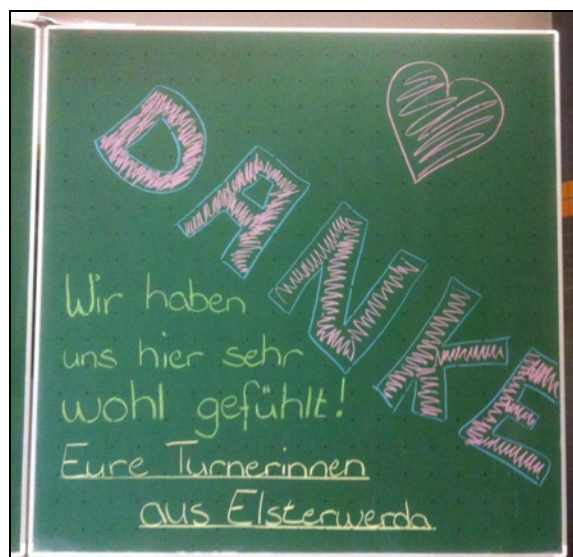 DANKE
Wir haben
uns hier sehr
wohl gefühlt!
Eure Turnerinnen
aus Elsterwerda